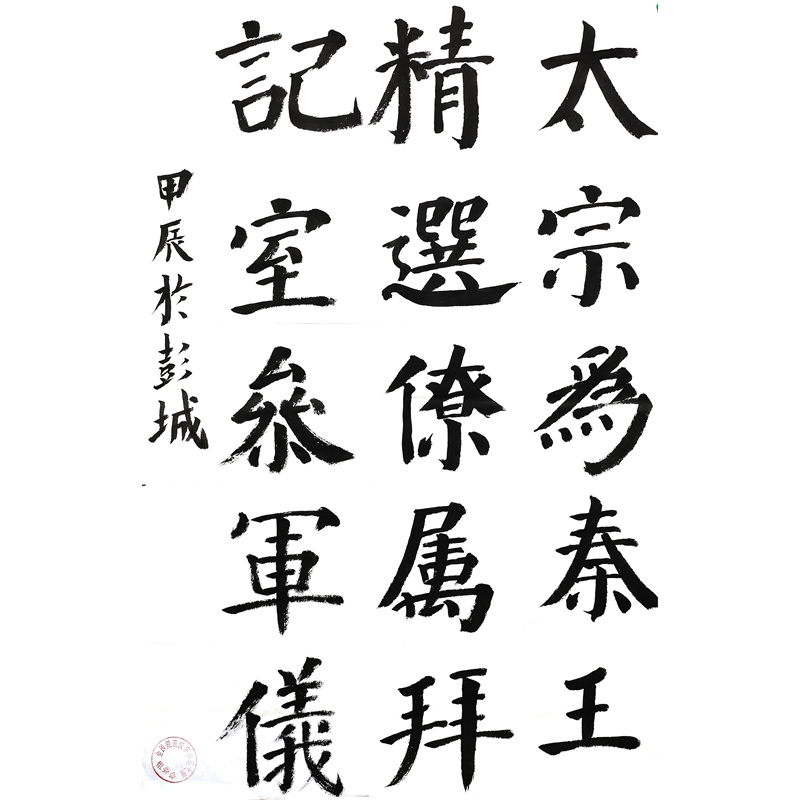 太宗為秦王
精選僚属拜
記室叅軍儀
甲辰於彭城